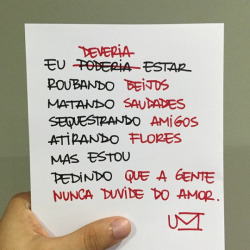 DEVERIA
EU PODERIA ESTAR
ROUBANDO BEIJOS
MATANDO SAUDADES
SEQUESTRANDO AMIGOS
ATIRANDO FLORES
MAS ESTOU
PEDINDO QUE A GENTE
NUNCA DUVIDE DO AMOR.